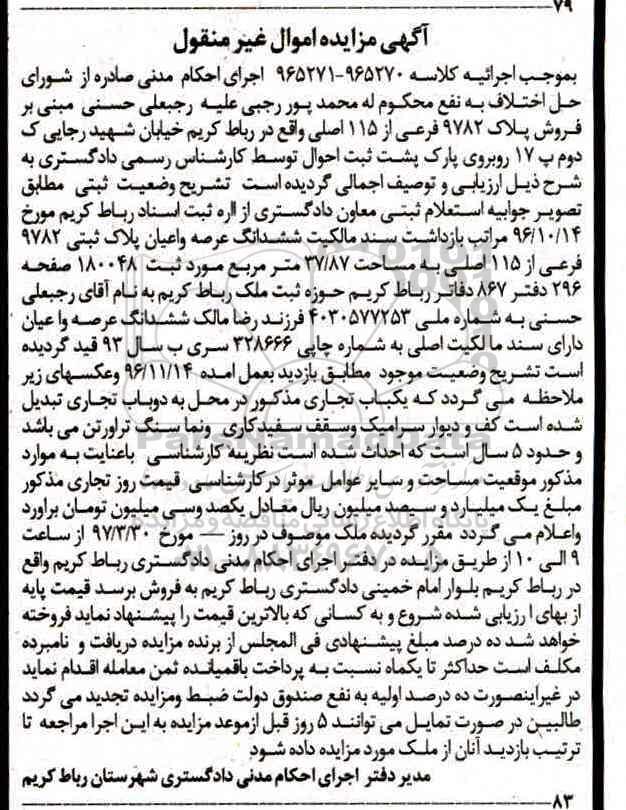 ۷۹
آگهی مزایده اموال غیر منقول
بموجب اجرائیه کلاسه ۹۶۵۲۷۰-۹۶۵۲۷۱ اجرای احکام مدنی صادره از شورای
حل اختلاف به نفع محکوم له محمد پور رجبی علیه رجبعلی حسنی مبنی بر
فروش پلاک ۹۷۸۲ فرعی از ۱۱۵ اصلی واقع در رباط کریم خیابان شهید رجایی ک
دوم پ ۱۷ روبروی پارک پشت ثبت احوال توسط کارشناس رسمی دادگستری به
شرح ذیل ارزیابی و توصیف اجمالی گردیده است تشریح وضعیت ثبتی مطابق
تصویر جوابیه استعلام ثبتی معاون دادگستری از اره ثبت اسناد رباط کریم مورخ
۹۶/۱۰/۱۴ مراتب بازداشت سند مالکیت ششدانگ عرصه واعیان پلاک ثبتی ۹۷۸۲
فرعی از ۱۱۵ اصلی به مساحت ۳۷/۸۷ متر مربع مورد ثبت ۱۸۰۰۴۸ صفحه
۲۹۶ دفتر ۸۶۷ دفاتر رباط کریم حوزه ثبت ملک رباط کریم به نام آقای رجبعلی
حسنی به شماره ملی ۴۰۳۰۵۷۷۲۵۳ فرزند رضا مالک ششدانگ عرصه وا عیان
دارای سند ما لکیت اصلی به شماره چاپی ۳۲۸۶۶۶ سری ب سال ۹۳ قید گردیده
است تشریح وضعیت موجود مطابق بازدید بعمل امده ۹۶/۱۱/۱۴ وعکسهای زیر
ملاحظه می گردد که یکباب تجاری مذکور در محل به دوباب تجاری تبدیل
شده است کف و دیوار سرامیک وسقف سفیدکاری ونما سنگ تراورتن می باشد
و حدود ۵ سال است که احداث شده است نظریه کارشناسی باعنایت به موارد
مذکور موقعیت مساحت و سایر عوامل موثر درکارشناسی قیمت روز تجاری مذکور
مبلغ یک میلیارد و سیصد میلیون ریال معادل یکصد وسی میلیون تومان براورد
واعلام می گردد مقرر گردیده ملک موصوف در روز — مورخ ۹۷/۳/۳۰ از ساعت
۹ الی ۱۰ از طریق مزایده در دفتر اجرای احکام مدنی دادگستری رباط کریم واقع
در رباط کریم بلوار امام خمینی دادگستری رباط کریم به فروش برسد قیمت پایه
از بهای ا رزیابی شده شروع و به کسانی که بالاترین قیمت را پیشنهاد نماید فروخته
خواهد شد ده درصد مبلغ پیشنهادی فی المجلس از برنده مزایده دریافت و نامبرده
مکلف است حداکثر تا یکماه نسبت به پرداخت باقمیانده ثمن معامله اقدام نماید
در غیراینصورت ده درصد اولیه به نفع صندوق دولت ضبط ومزایده تجدید می گردد
طالبین در صورت تمایل می توانند ۵ روز قبل ازموعد مزایده به این اجرا مراجعه تا
ترتیب بازدید آنان از ملک مورد مزایده داده شود
مدیر دفتر اجرای احکام مدنی دادگستری شهرستان رباط کریم
۸۳